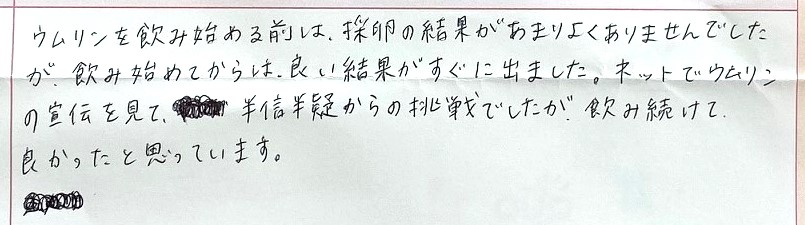 ウムリンを飲み始める前は、採卵の結果があまりよくありませんでした
が、飲み始めてからは、良い結果がすぐに出ました。ネットでウムリン
の宣伝を見て、半信半疑からの挑戦でしたが、飲み続けて、
良かったと思っています。